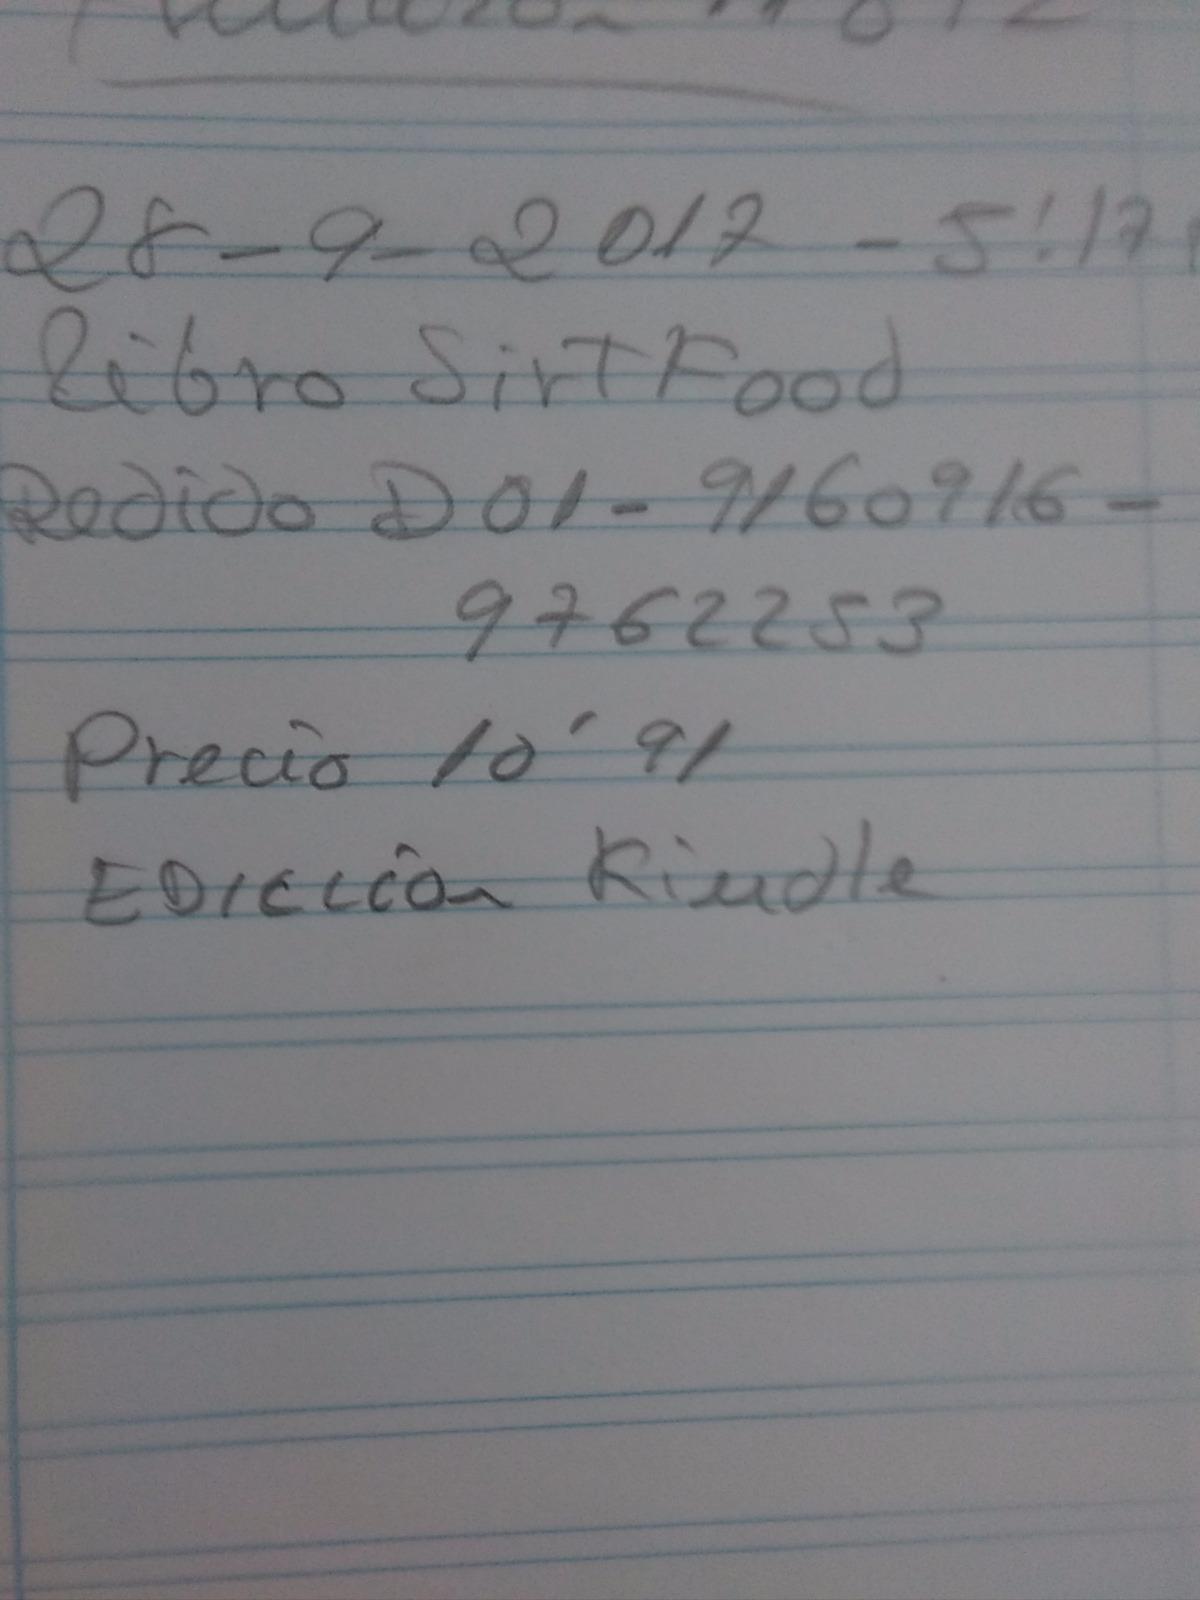 28-9-2017 - 5:17
Libro SirtFood
Pedido D01-9160916-
9762253
Precio 10'91
EDICCIÓn Kindle